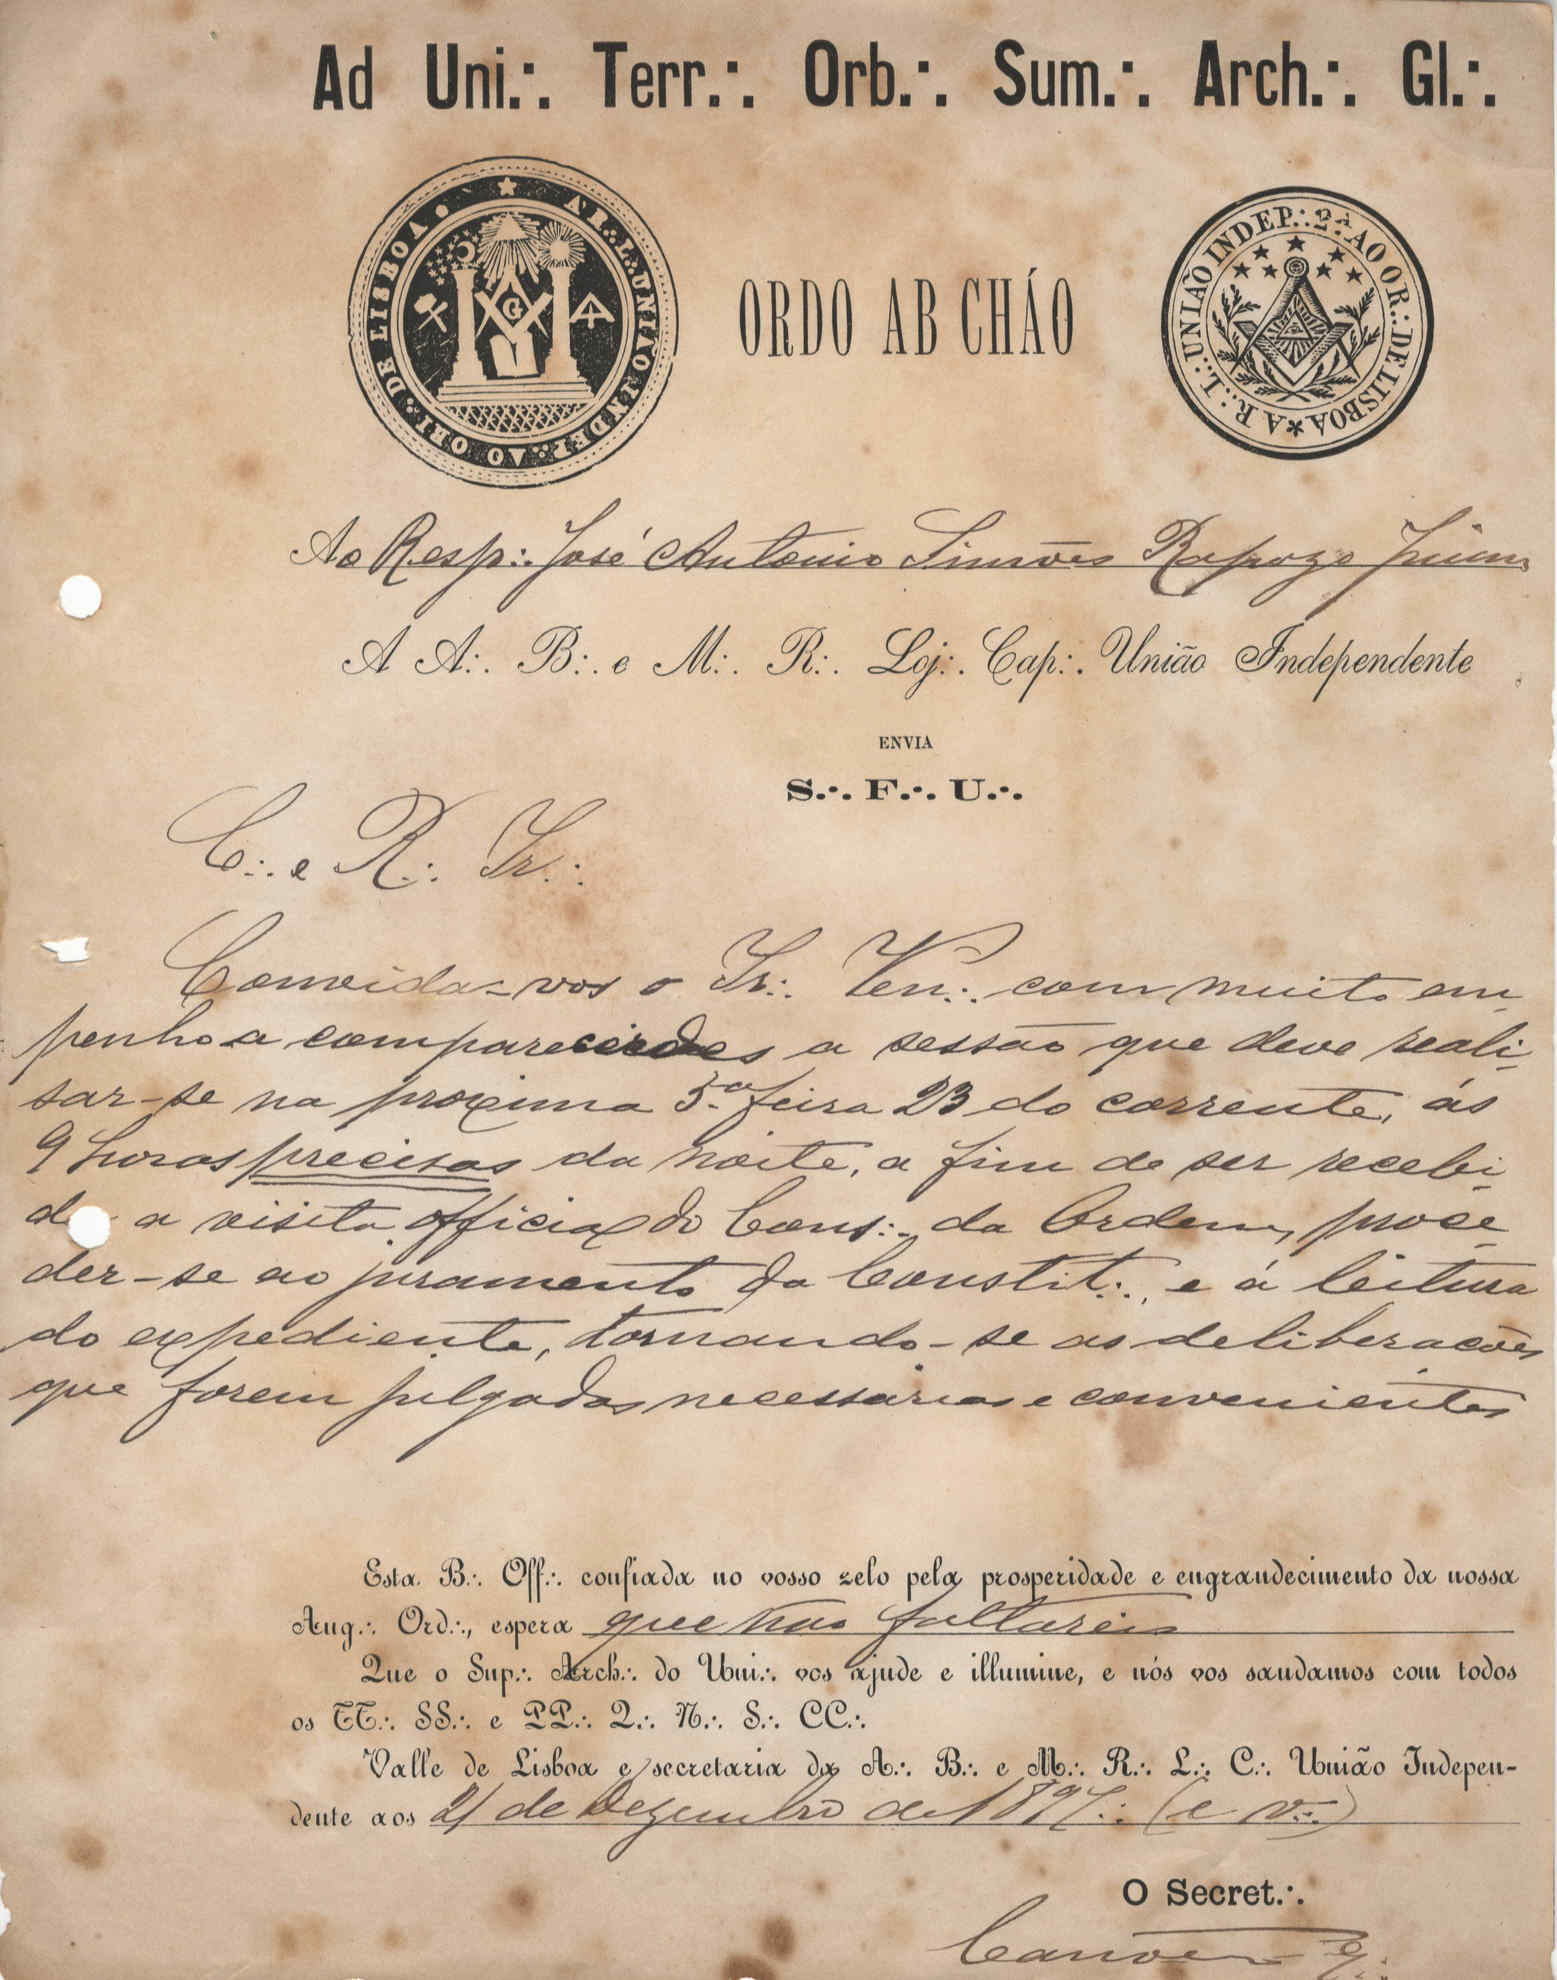 Ad Uni.·. Terr.·. Orb.·. Sum.·. Arch.·. Gl.·.
A R.·. L.·. UNIÃO INDEP.·. AO ORI.·. DE LISBOA
ORDO AB CHÁO
A R.·. L.·. UNIÃO INDEP.·. 2ª AO OR.·. DE LISBOA
Ao Resp.·. José Antonio Simões Rapozo Junior
A A.·. B.·. e M.·. R.·. Loj.·. Cap.·. União Independente
ENVIA
S.·. F.·. U.·.
C.·. e R.·. Ir.·.
Convida-vos o Ir.·. Ven.·. com muito em
penho a comparecerdes a sessão que deve reali-
sar-se na proxima 5.ª feira 23 do corrente, ás
9 horas precisas da noite, a fim de ser recebi-
da a visita official do Cons.·. da Ordem, proce-
der-se ao juramento da Constit.·., e á leitura
do expediente, tomando-se as deliberacões
que forem julgadas necessarias e convenientes
Esta B.·. Off.·. confiada no vosso zelo pela prosperidade e engrandecimento da nossa
Aug.·. Ord.·., espera que não faltareis
Que o Sup.·. Arch.·. do Uni.·. vos ajude e illumine, e nós vos saudamos com todos
os TT.·. SS.·. e PP.·. Q.·. N.·. S.·. CC.·.
Valle de Lisboa e secretaria da A.·. B.·. e M.·. R.·. L.·. C.·. União Indepen-
dente aos 21 de Dezembro de 1897.·. (e v.·.)
O Secret.·.